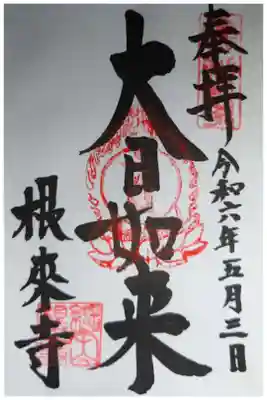 奉拝
令和六年五月三日
大日如来
根来寺